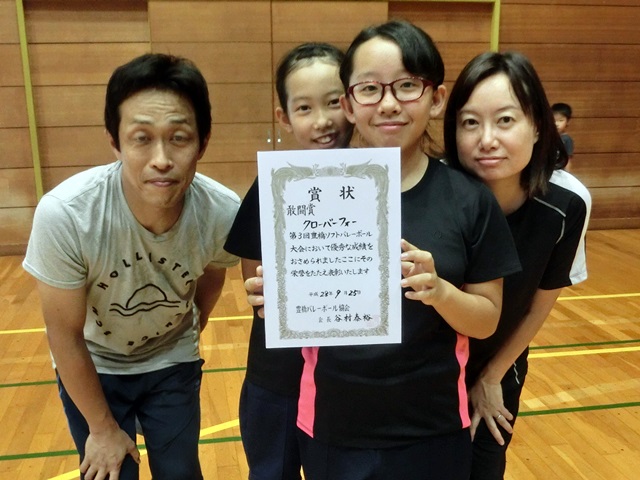 賞状
敢闘賞
クローバーフォー
第3回豊橋ソフトバレーボール
大会において優秀な成績を
おさめられましたここにその
栄誉をたたえ表彰いたします
平成28年9月25日
豊橋バレーボール協会
会長 谷村泰裕
HOLLISTER